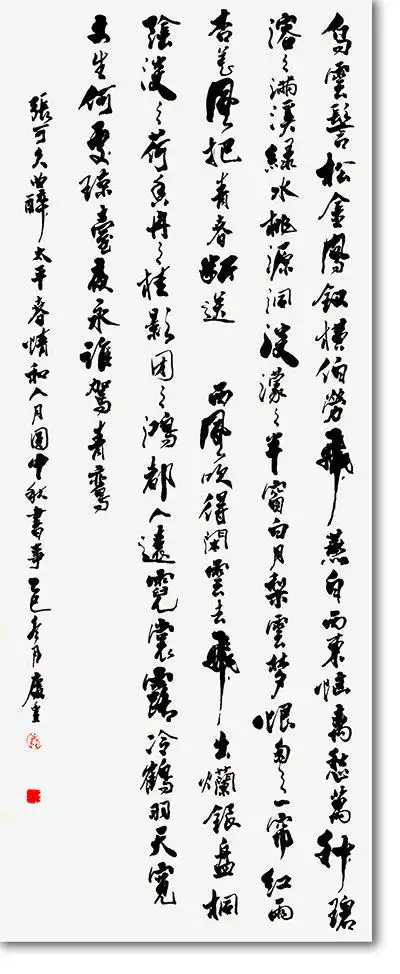 烏雲髻松金鳳釵橫伯勞飛燕自西東惱離愁萬種碧
溶〻滿溪綠水桃源洞淡濛〻半窗白月梨雲夢恨匆〻一簾紅雨
杏花風把青春斷送 西風吹得閑雲去飛出爛銀盤桐
陰淡〻荷香冉〻桂影團〻鴻都人遠霓裳露冷鶴羽天寬
文生何處瓊臺夜永誰駕青鸞
張可久曲醉太平春情和人月圓中秋書事乙巳冬月